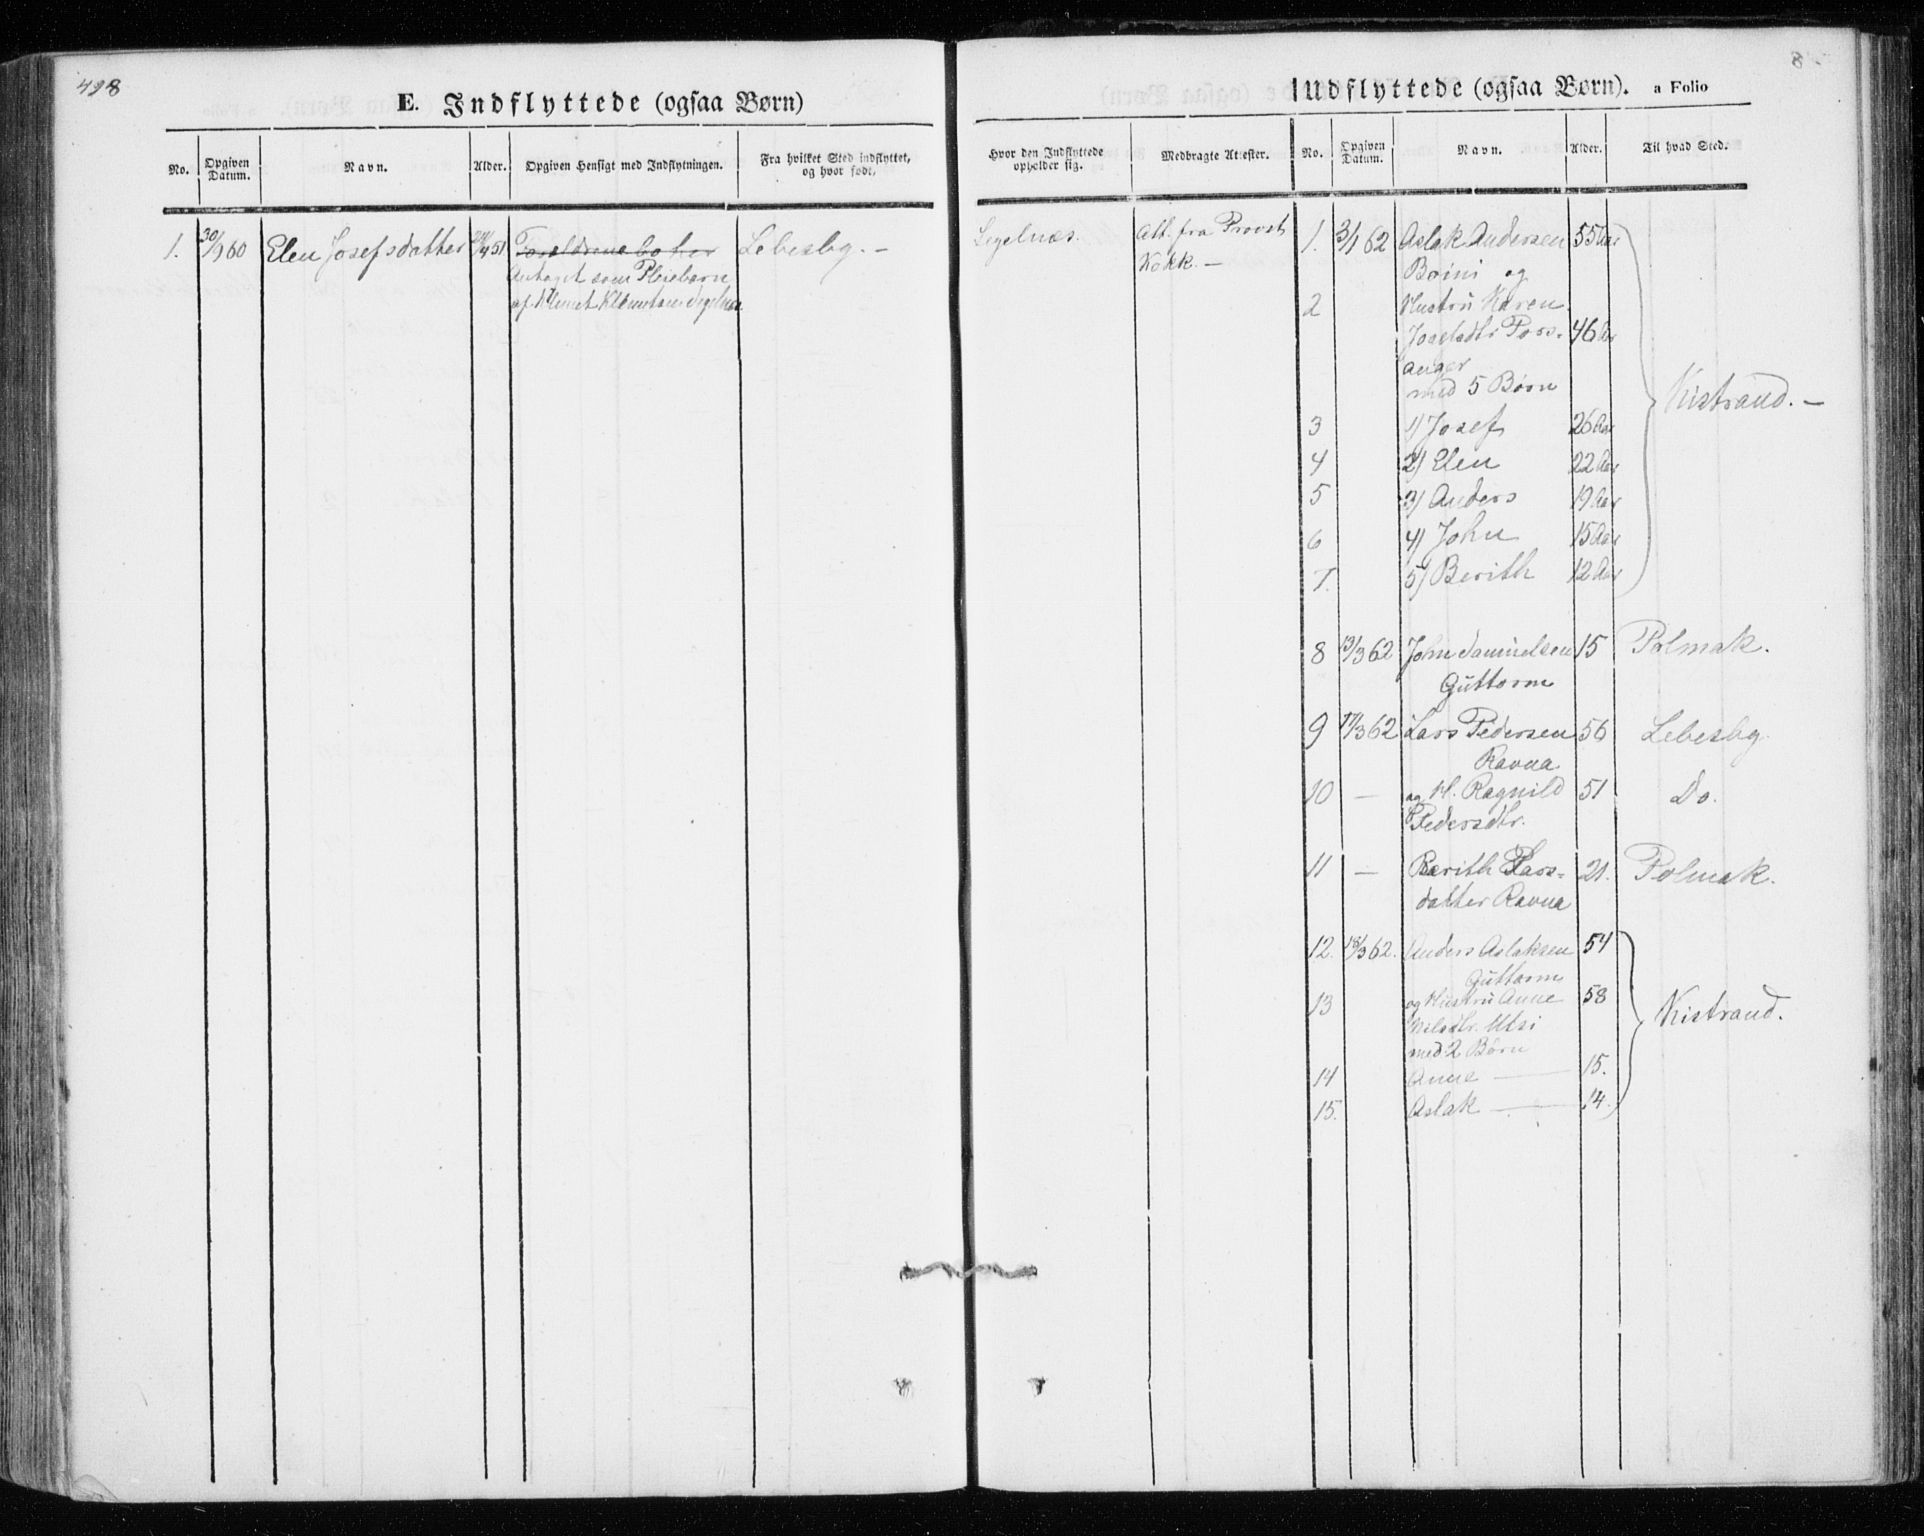 498
E. Indflyttede (ogsaa Børn)
No.
Opgiven Datum.
Navn.
Alder.
Opgiven Hensigt med Indflytningen.
Fra hvilket Sted indflyttet, og hvor født.
1. 30/9 60 Elen Josefsdatter 51 Forældrene bo her Lebesby. -
Antaget som Pleiebarn
af Klemet Klemetsen
Indflyttede (ogsaa Børn). a Folio
8
Hvor den Indflyttede opholder sig.
Medbragte Attester.
No.
Opgiven Datum.
Navn.
Alder.
Til hvad Sted.
Att. fra Provst
Kokk. -
1. 3/1 62 Aslak Andersen 55 Aar
Boini og
2 Hustrü Karen
Josefsdtr Pors- 46 Aar
anger
med 5 Børn
Kistrand. -
3 1) Josef 26 Aar
4 2) Elen 22 Aar
5 3) Anders 19 Aar
6 4) John 15 Aar
7. 5) Berith 12 Aar
8 13/3 62 John Samuelsen 15 Polmak.
Güttorm
9 17/3 62 Lars Pedersen 56 Lebesby
Ravna
10 — og H. Ragnild 51 Do.
Pedersdtr.
11 — Berith Lars- 21. Polmak.
datter Ravna
12. 18/3 62. Anders Aslaksen 54
Güttorm
13 og Hustrü Anne 58
Nilsdtr. Utsi
med 2 Børn
Kistrand.
14 Anne — 15.
15. Aslak — 14.